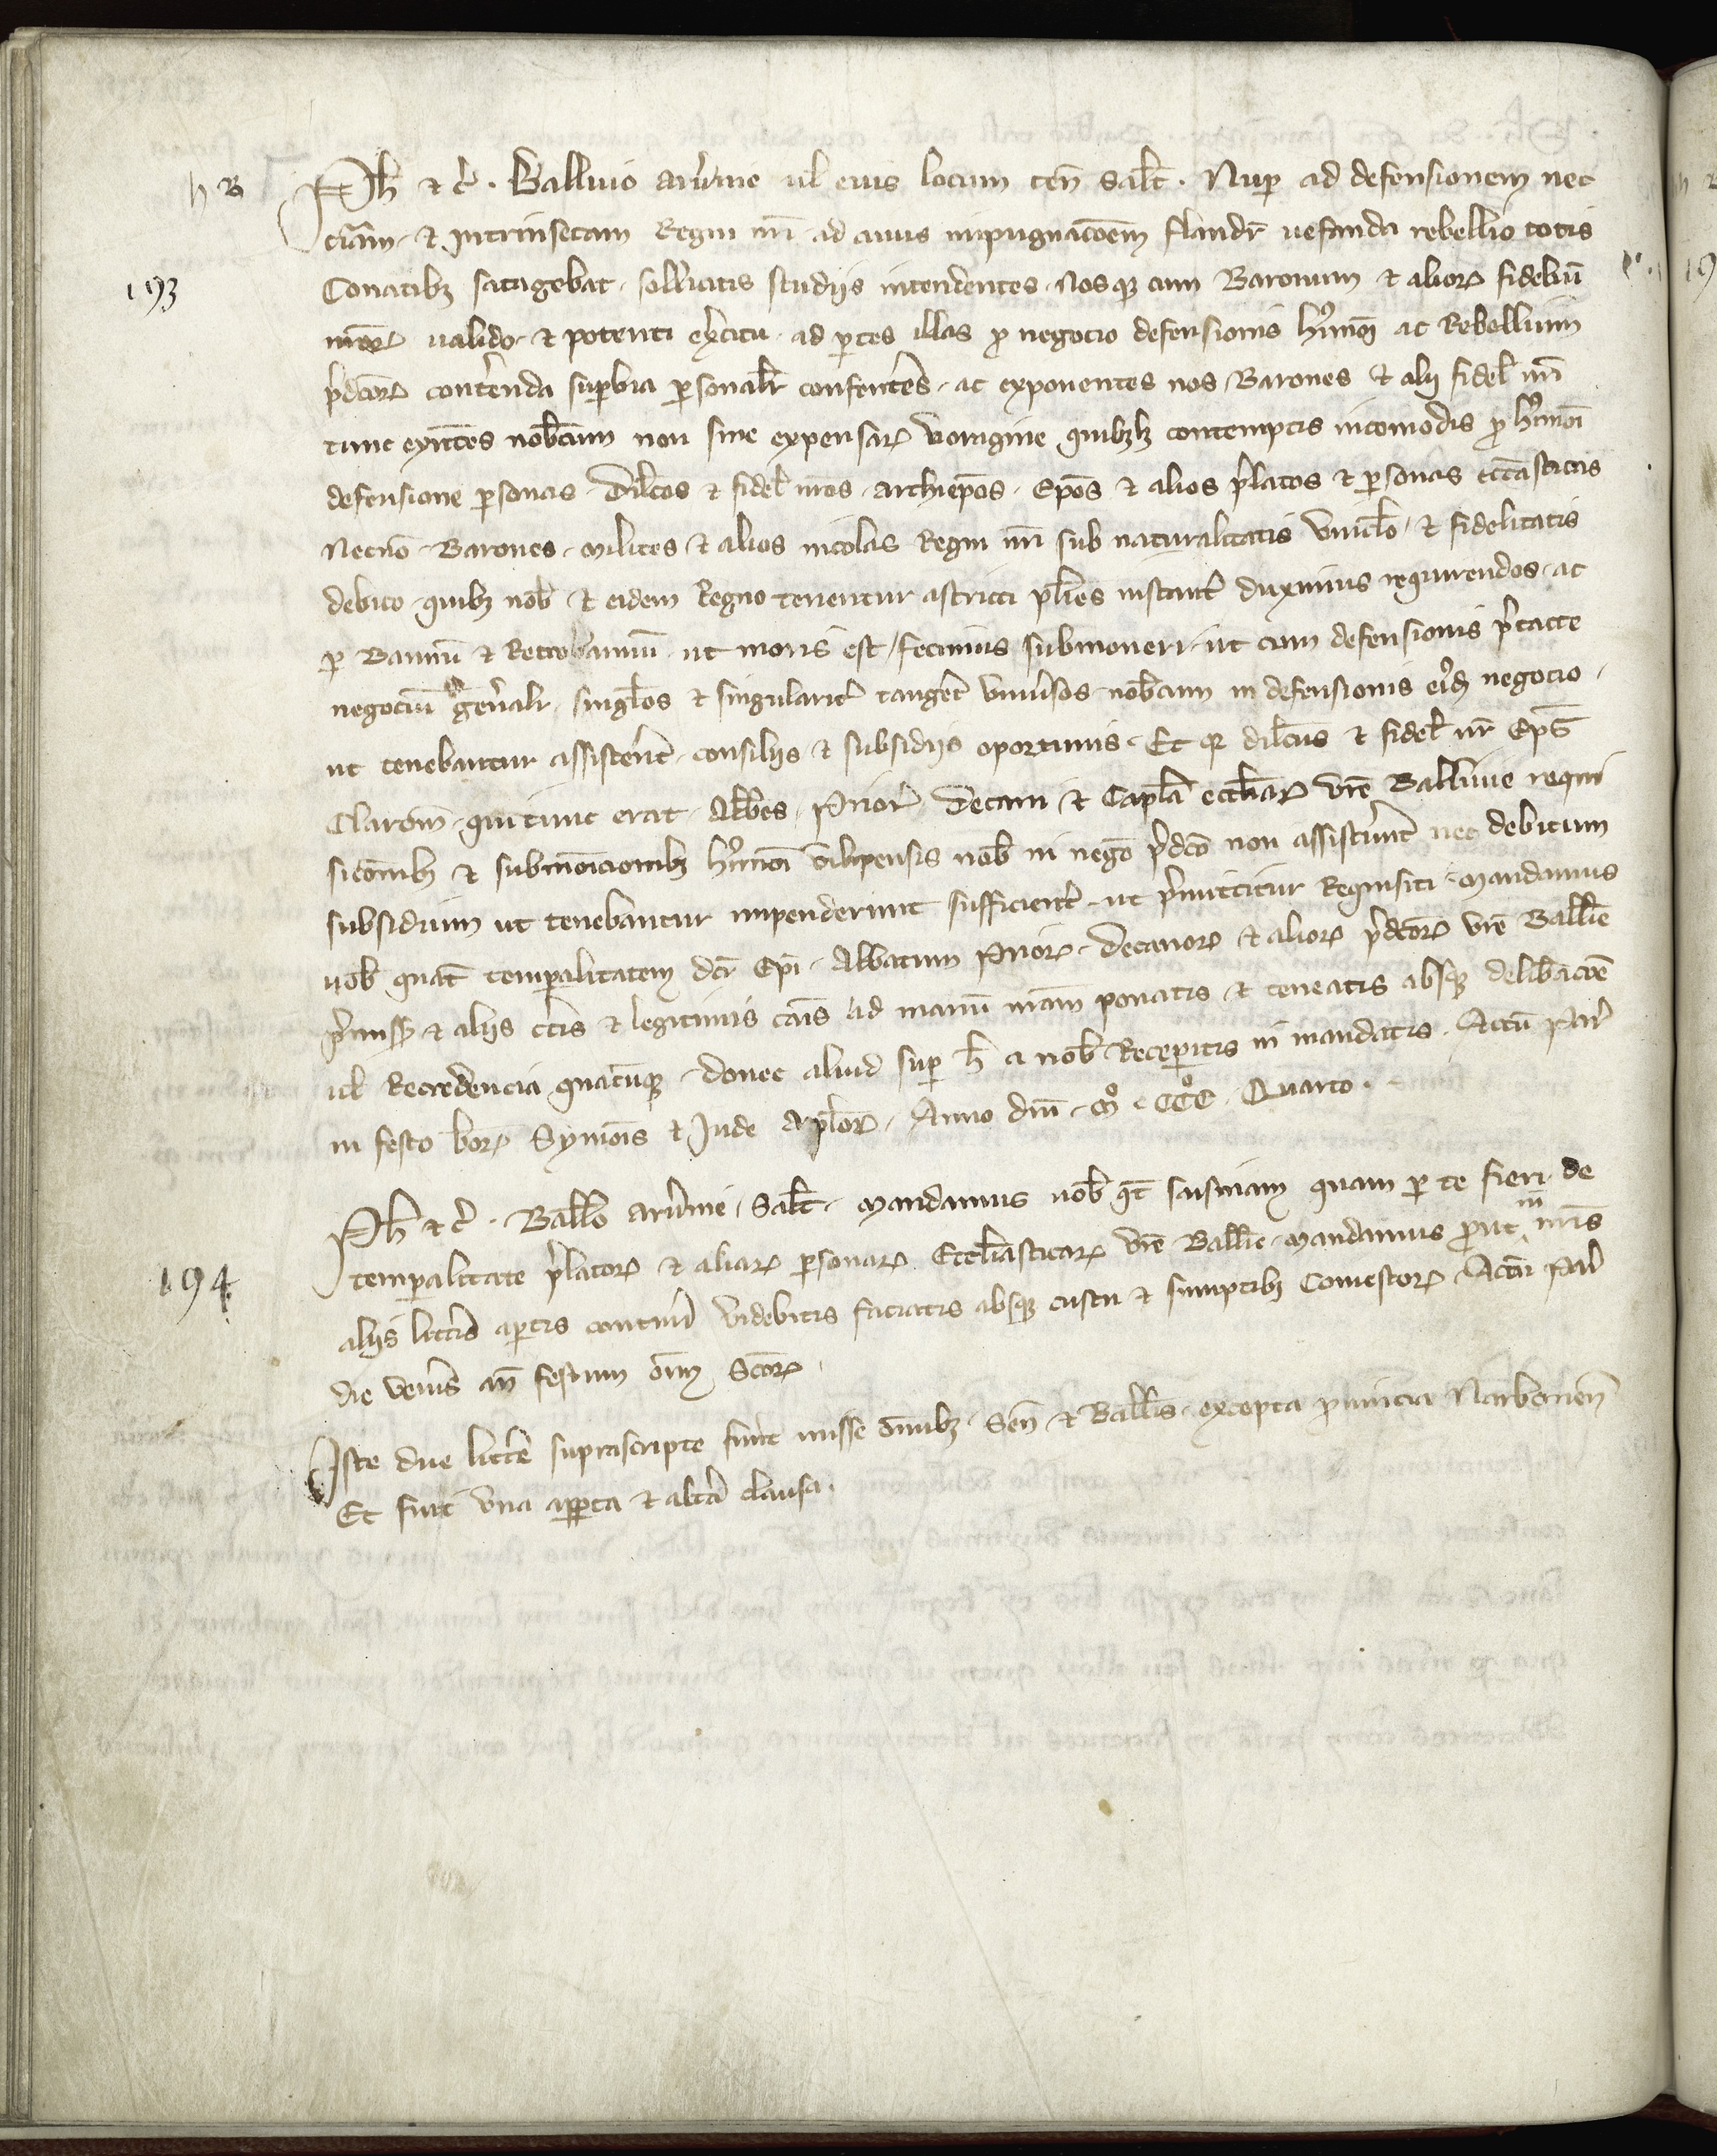 h B
Ph̄ ⁊ c̄ . Balliuio aruernie ul eius locum ten̄ salt̄ . Nuper ad defensionem nec
ciām ⁊ intrinsecam Regni nr̄i ad cuius impugnacōem flandr̄ nefanda rebellio totis
193
Conatibꝫ satagebat . sollicitis studiis intendentes . Nosqꝫ cum Baronum ⁊ alioꝝ fideliū
nr̄oꝝ ualido ⁊ potenti exercitu . ad partes illas pro negocio defensionis hr̄moi ac Rebellium
p̄dcōꝝ conterenda superbia personalr̄ conferentes . ac exponentes nos . Barones ⁊ alij fidel̄ nr̄i
tunc exn̄tes nobcum non sine expensaꝝ voragine quibꝫlꝫ contemptis incomodis pro hr̄moi
defensione personas . Dilc̄os ⁊ fidel̄ nr̄os . archiep̄os . Ep̄os ⁊ alios p̄latos ⁊ personas ecc̄asticas
Necnō . Barones . milites ⁊ alios incolas Regni nr̄i sub naturalitatis vinclō . ⁊ fidelitatis
debito . quibꝫ nob̄ ⁊ eidem Regno tenentur astricti pluries instant̄ duximus requirendos . ac
per Bannū ⁊ Retrobannū . ut moris est / fecimus submoneri . ut cum defensionis p̄tacte
negociū gen̄alr̄ . singl̄os ⁊ singularit̄ tanget̄ vniuersos . nobcum in defensionis eiꝰd negocio .
ut tenebantur assistent̄ . consiliis ⁊ subsidiis oportunis . Et qꝛ dilc̄us ⁊ fidel̄ nr̄ Ep̄s
Clarom̄ . qui tunc erat . Abbes . Prior̄ . Decani ⁊ Capl̄a eccl̄iaꝝ vr̄e Balliuie requi
sicōnibꝫ ⁊ submōicionibꝫ hr̄moi vilipensis nob̄ in nego p̄dcō non assistunt̄ nec debitum
subsidium ut tenebantur impenderunt sufficient̄ . ut p̄mittitur Requisiti . Mandamus
uob̄ quat̄ temporalitatem dc̄i Ep̄i . Abbatum Prioꝝ . Decanoꝝ ⁊ alioꝝ p̄dcōꝝ vr̄e Ballīe
p̄miss̄ ⁊ aliis cc̄is ⁊ legitimis cāis ad manū nr̄am ponatis ⁊ teneatis absqꝫ delibacōe
ul Recredencia quacunqꝫ . donec aliud super h̄ a nob̄ Receperitis in mandatis . Actū Par̄
in festo b̄oꝝ Symois ⁊ Jude apl̄oꝝ . Anno dn̄i . Mͦ . CCCͦ . Quarto .
Ph̄ ⁊ c̄ . Ballō aruernie . Salt̄ . Mandamus uob̄ qt̄ saisinam quam per te fieri de
temporalitate p̄latoꝝ ⁊ aliaꝝ personaꝝ Eccl̄iasticaꝝ vr̄e Ballīe . mandamus prout in nr̄is
194
aliis litteris apertis contineri videbitis faciatis absqꝫ custu ⁊ sumptibꝫ Comestoꝝ . Actū Par̄
die veneris an̄ festum oīm Scōꝝ .
Iste due litter̄e suprascripte fuer̄t misse om̄ibꝫ . Sen̄ . ⁊ Ballīs . excepta prouincia Narbonen̄
Et fuit vna apperta ⁊ altera clausa .